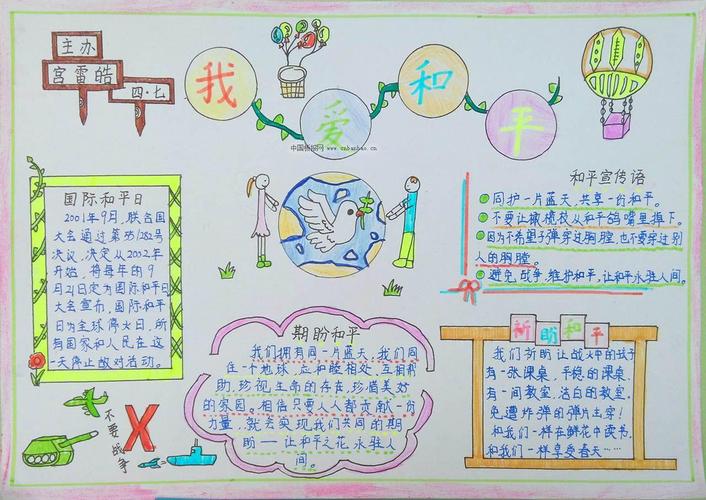 主办
宫雷皓
四·七
我爱和平
中国板报网
www.cnbanbao.cn
国际和平日
2001年9月，联合国
大会通过第55/282号
决议，决定从2002年
开始，将每年的9
月21日定为国际和平日
大会宣布，国际和平
日为全球停火日，所
有国家和人民在这
一天停止敌对活动。
和平宣传语
同护一片蓝天，共享一份和平。
不要让橄榄枝从和平鸽嘴里掉下。
因为不希望子弹穿过胸膛，也不要穿过别
人的胸膛。
避免战争，维护和平，让和平永驻人间。
期盼和平
我们拥有同一片蓝天，我们同
住一个地球，应和睦相处，互相帮
助，珍视生命的存在，珍惜美好
的家园。相信只要人人都贡献一份
力量，就会实现我们共同的期
盼——让和平之花永驻人
间。
祈盼和平
我们祈盼让战火中的孩子
有一张课桌，平稳的课桌，
有一间教室，洁白的教室，
免遭炸弹的弹片击穿！
和我们一样在鲜花中读书，
和我们一样享受春天……
不要战争
X